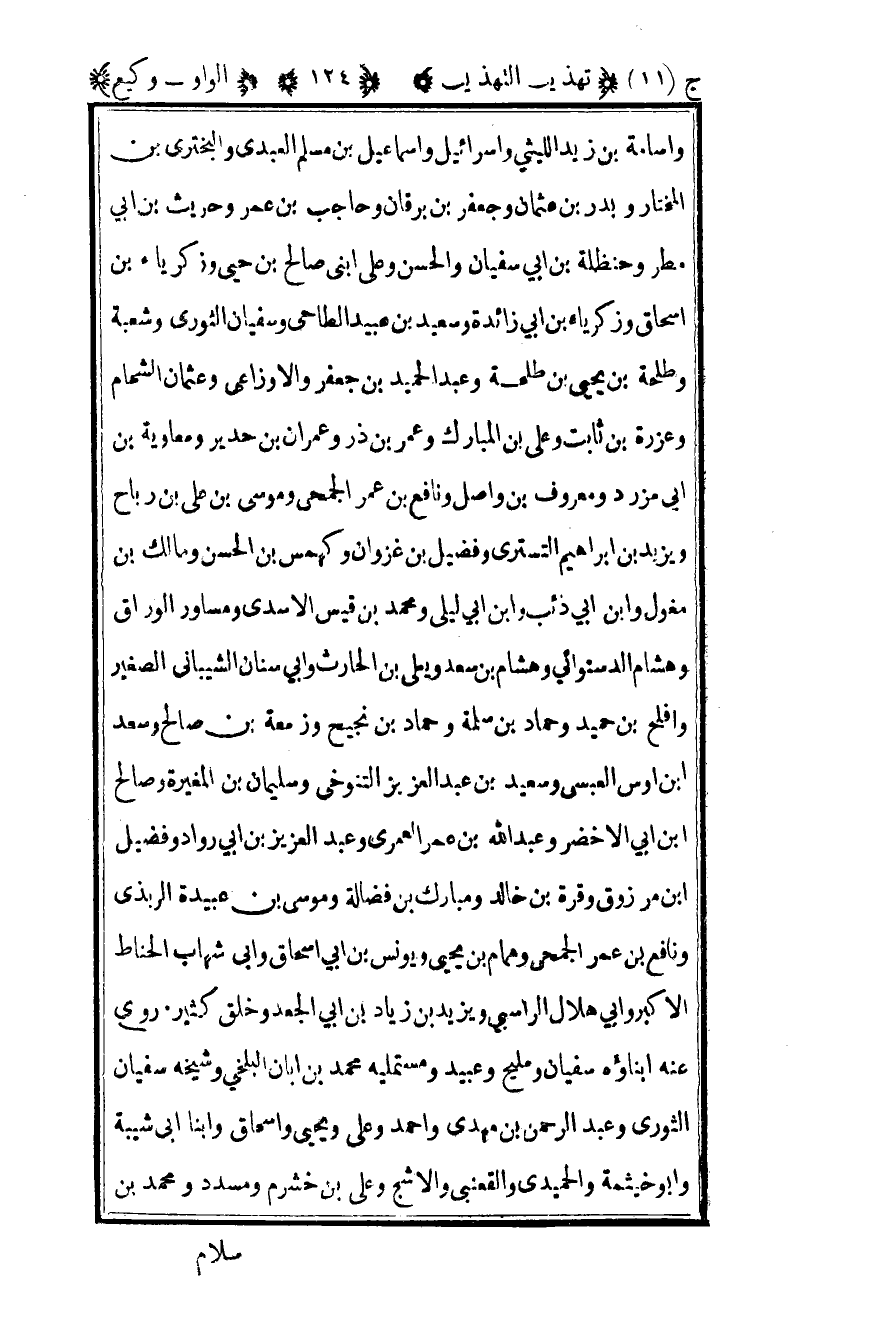 ج (١١) تهذيب التهذيب ١٢٤ الواو ـ وكيع
واسامة بن زيد الليثي واسرائيل واسماعيل بن مسلم العبدى والبخترى بن
المختار و بدر بن عثمان وجعفر بن برقان وحاجب بن عمر وحريث بن ابي
مطر وحنظلة بن ابي سفيان والحسن وعلى ابنى صالح بن حيى وزكرياء بن
اسحاق وزكرياء بن ابي زائدة وسعيد بن عبيد الطاحى وسفيان الثورى وشعبة
وطلحة بن يحيى بن طلحة وعبد الحميد بن جعفر والاوزاعى وعثمان الشحام
وعزرة بن ثابت وعلى بن المبارك وعمر بن ذر وعمران بن حدير ومعاوية بن
ابي مزرد ومعروف بن واصل ونافع بن عمر الجمحى وموسى بن على بن رباح
ويزيد بن ابراهيم التسترى وفضيل بن غزوان وكهمس بن الحسن ومالك بن
مغول وابن ابي ذئب وابن ابي ليلى ومحمد بن قيس الاسدى ومساور الوراق
وهشام الدستوائي وهشام بن سعد ويعلى بن الحارث وابي سنان الشيبانى الصغير
وافلح بن حميد وحماد بن سلمة وحماد بن نجيح وزمعة بن صالح وسعد
ابن اوس العبسى وسعيد بن عبد العزيز التنوخى وسليمان بن المغيرة وصالح
ابن ابي الاخضر وعبد الله بن عمر العمرى وعبد العزيز بن ابي رواد وفضيل
ابن مرزوق وقرة بن خالد ومبارك بن فضالة وموسى بن عبيدة الربذى
ونافع بن عمر الجمحى وهمام بن يحيى ويونس بن ابي اسحاق وابى شهاب الحناط
الاكبر وابي هلال الراسبى ويزيد بن زياد بن ابي الجعد وخلق كثير. روى
عنه ابناؤه سفيان ومليح وعبيد ومستمليه محمد بن ابان البلخي وشيخه سفيان
الثورى وعبد الرحمن بن مهدى واحمد وعلى ويحيى واسحاق وابنا ابى شيبة
وابو خيثمة والحميدى والقعنبى والاشج وعلى بن خشرم ومسدد و محمد بن
سلام